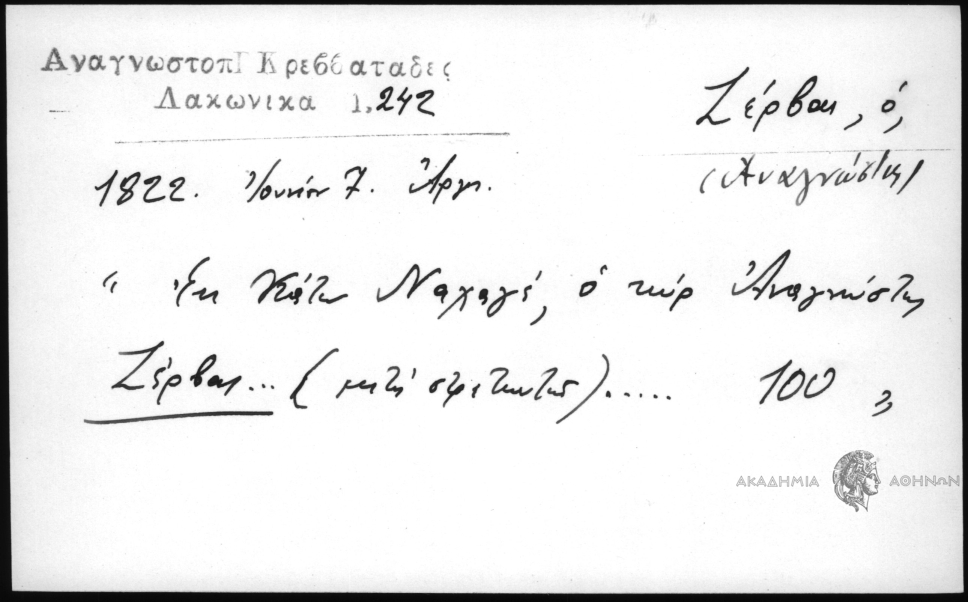 Αναγνωστοπ Γ Κρεββαταδες
Λακωνικα 1,242
Ζέρβας, ὁ,
(Ἀναγνώστης)
1822. Ἰουνίου 7. Ἄργος.
" Ἐκ Κάτω Ναχαγέ, ὁ κύρ Ἀναγνώστης
Ζέρβας... ( μετὰ στρατιώτας )..... 100 "
ΑΚΑΔΗΜΙΑ ΑΘΗΝΩΝ